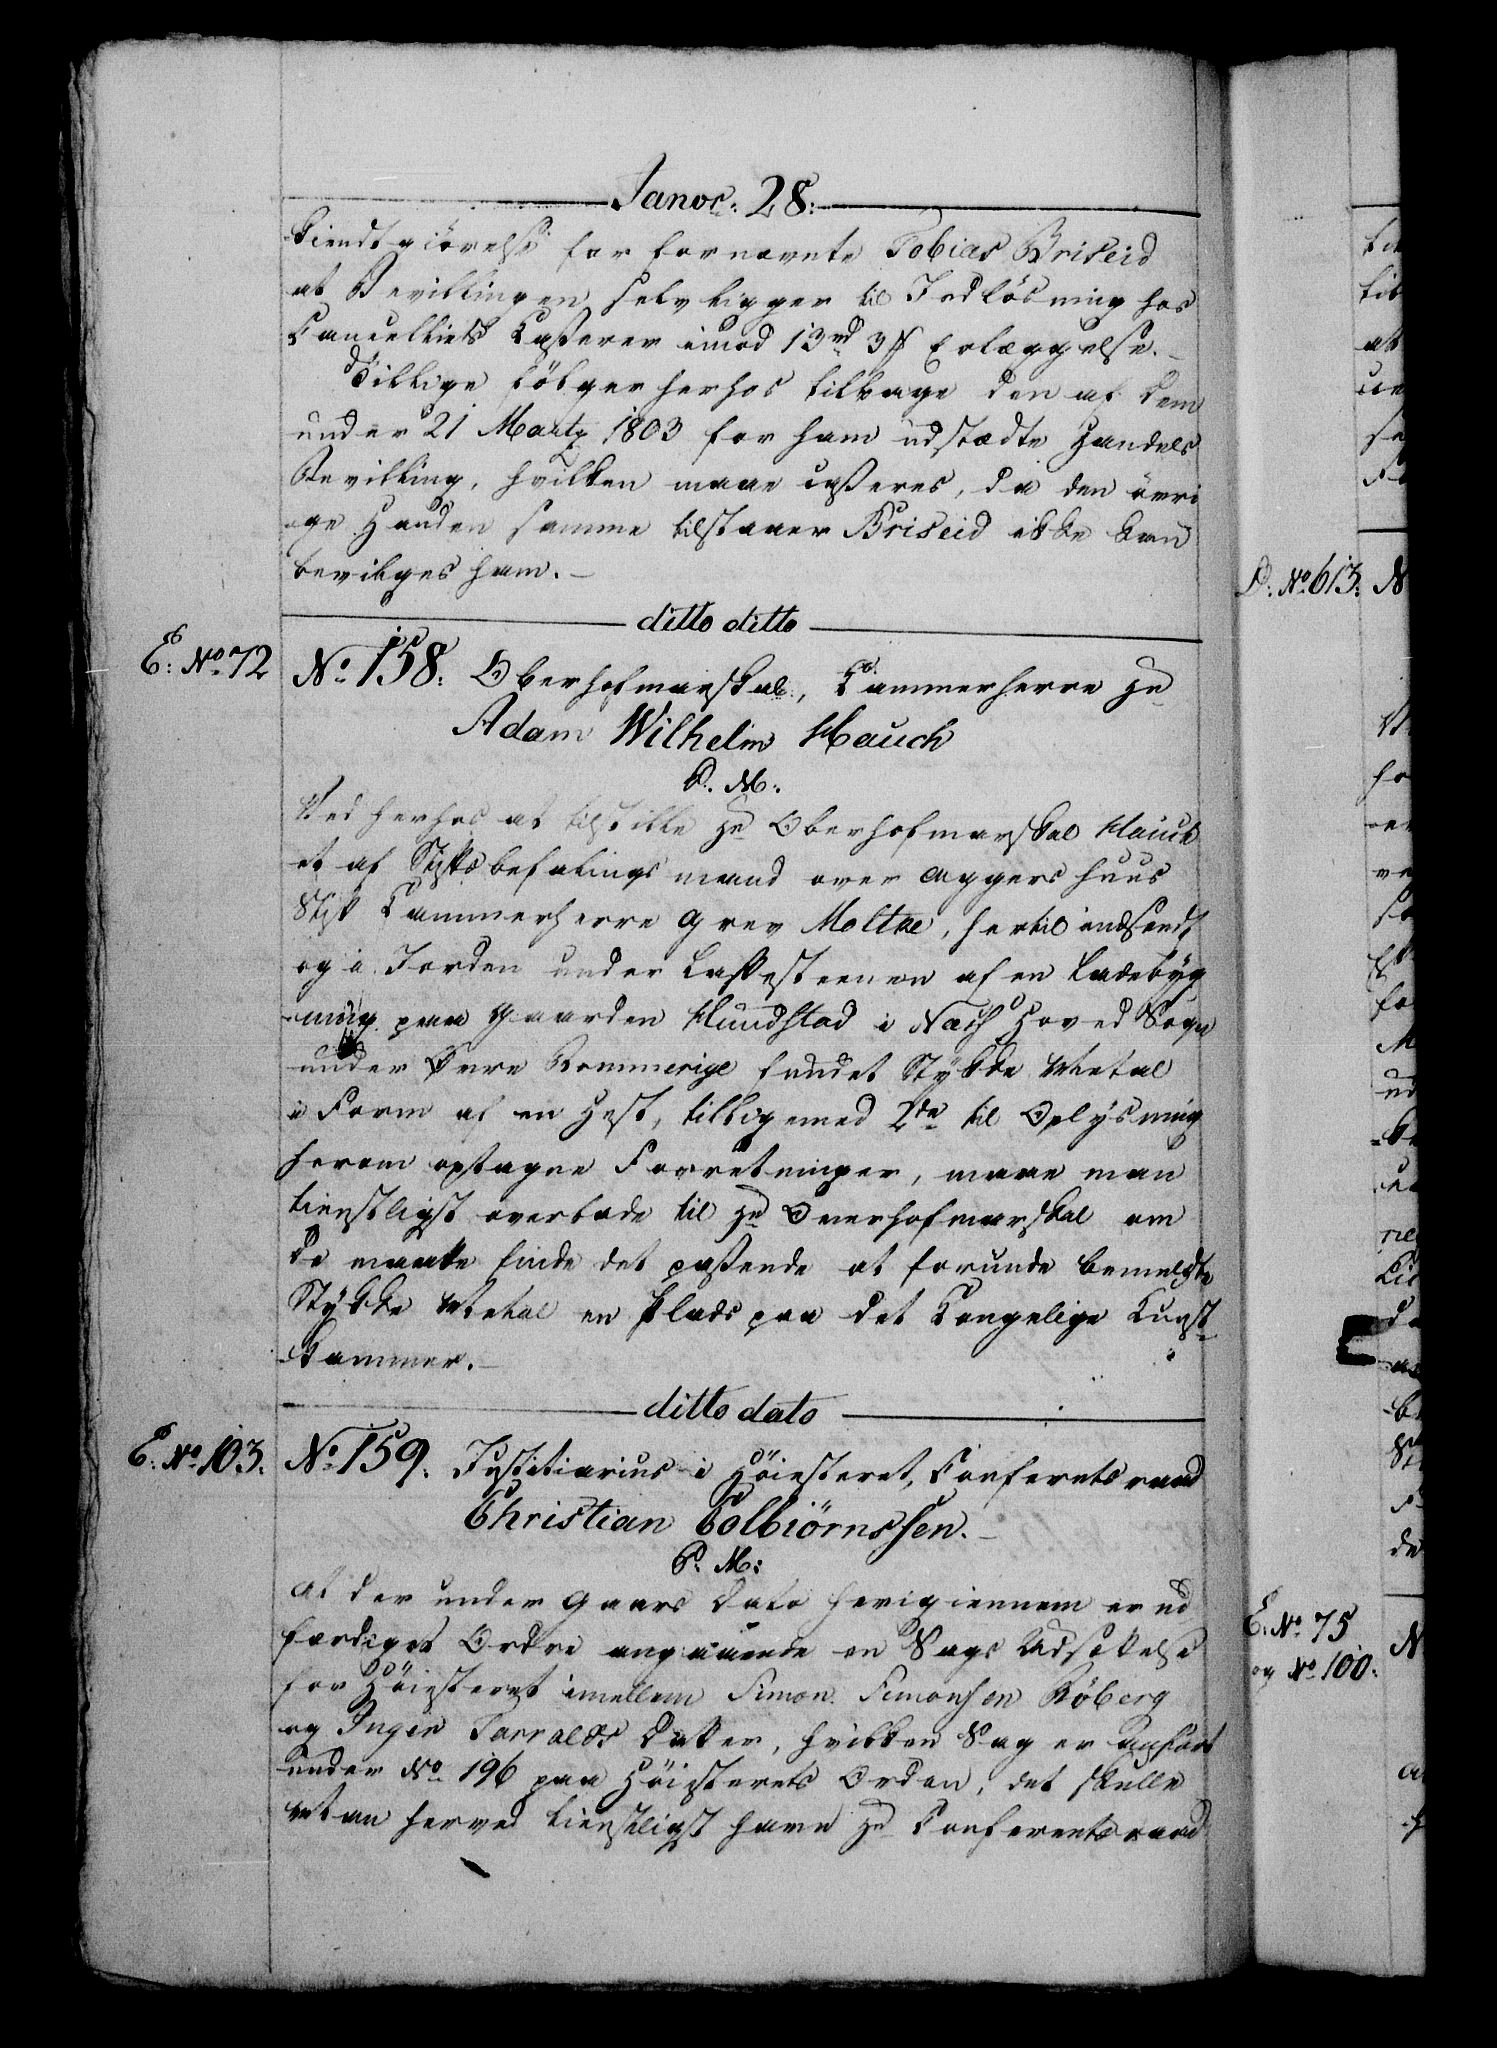 Janvr: 28:
kiendtgiörelse for fornævnte Tobias Briseid
at Bevillingen selv ligger til Indlösning hos
Cancelliets Casserer imod 13 rd 3 ß Erlæggelse. -
Tillige fölger herhos tilbage den af Dem
under 21 Martz 1803 for ham udstædte Handels
Bevilling, hvilken maae casseres, da den övri
-ge Handen samme tilstaaer Briseid ikke kan
bevilges ham. -
ditto ditto
E: No. 72
No. 158. Oberhofmarskal, Cammerherre Hr
Adam Wilhelm Hauch
P. M:
Ved herhos at tilstille Hr Oberhofmarskal Hauch
et af Stiftsbefalingsmand over Aggershuus
Stift Cammerherre Grev Moltke, hertil indsendt
og i Jorden under en Ladebyg
-ning paa Gaarden Hundstad i Næs Hoved Sogn
under Övre Rommerige fundet Stykke Metal
i Form af en Hest, tilligemed 2de til Oplysning
herom optagne Forretninger, maae man
tienstligst overlade til Hr Overhofmarskal om
De maatte finde det passende at forunde bemeldte
Stykke Metal en Plads paa det Kongelige Kunst-
-kammer. -
ditto dato
E. No. 103.
No. 159. Justitiarius i Höiesteret, Conferentsraad
Christian Colbiörnssen. -
P. M:
At der under Gaars Dato herigiennem er ud
færdiget Ordre angaaende en Sags Udsættelse
for Höiesteret imellem Simon Simonsen Röberg
og Inger Tarralds Datter, hvilken Sag er anfört
under No. 196 paa Höiesterets Orden, det skulle
Man herved tienstligst have Hr Conferentsraad
P. No. 613.
E: No. 75
og No. 100.